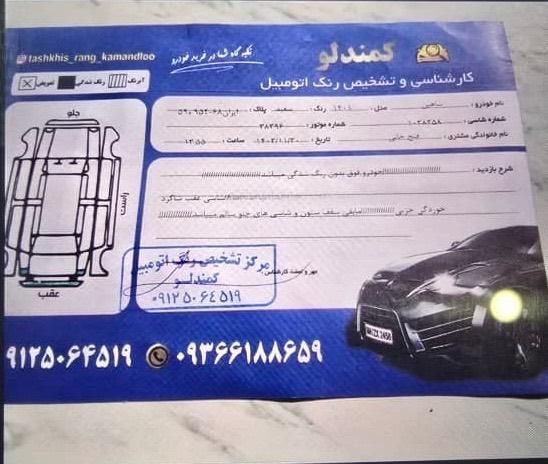 tashkhis_rang_kamandloo
تکیه گاه شما در خرید خودرو
کمندلو
کارشناسی و تشخیص رنگ اتومبیل
آبرنگ رنگ شدگی تعویض
نام خودرو : شاهین مدل : ۱۴۰۱ رنگ : سفید پلاک :
شماره شاسی : ۱۰۲۸۲۵۸ شماره موتور : ۲۸۲۹۶
نام خانوادگی مشتری : فتح خانی تاریخ : ۱۴۰۲/۱۱/۳۰ ساعت : ۱۳:۵۵
جلو
راست
عقب
شرح بازدید : //////////////////خودرو فوق بدون رنگ شدگی میباشد//////////////////
شاسی عقب شاگرد
خوردگی جزیی////////////مابقی سقف ستون و شاسی های جلو سالم میباشد////////////
مهر و امضاء کارشناس :
مرکز تشخیص رنگ اتومبیل
کمندلو
۰۹۱۲۵۰۶۴۵۱۹
۹۱۲۵۰۶۴۵۱۹ ۰۹۳۶۶۱۸۸۶۵۹